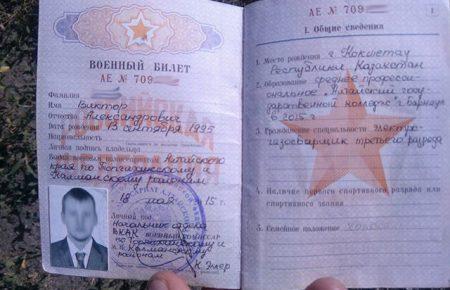 ВОЕННЫЙ БИЛЕТ
АЕ № 709
Фамилия
Имя Виктор
Отчество Александрович
Дата рождения 13 сентября 1995
Национальность
Личная подпись владельца
Билет выдан Алтайского
края по Топчихинскому и
Калманскому районам
18 мая 15 г.
Личный код
Начальник отдела
ВКАК
по Топчихинскому и
Калманскому
районам
К. Эллер
АЕ № 709
1
I. Общие сведения
1. Место рождения г. Кокшетау
Республики Казахстан
2. Образование среднее професси-
ональное "Алтайский госу-
дарственный колледж" г. Барнаул
в 2015 г.
3. Гражданские специальности электро-
газосварщик третьего разряда
4. Наличие первого спортивного разряда или
спортивного звания
5. Семейное положение холост